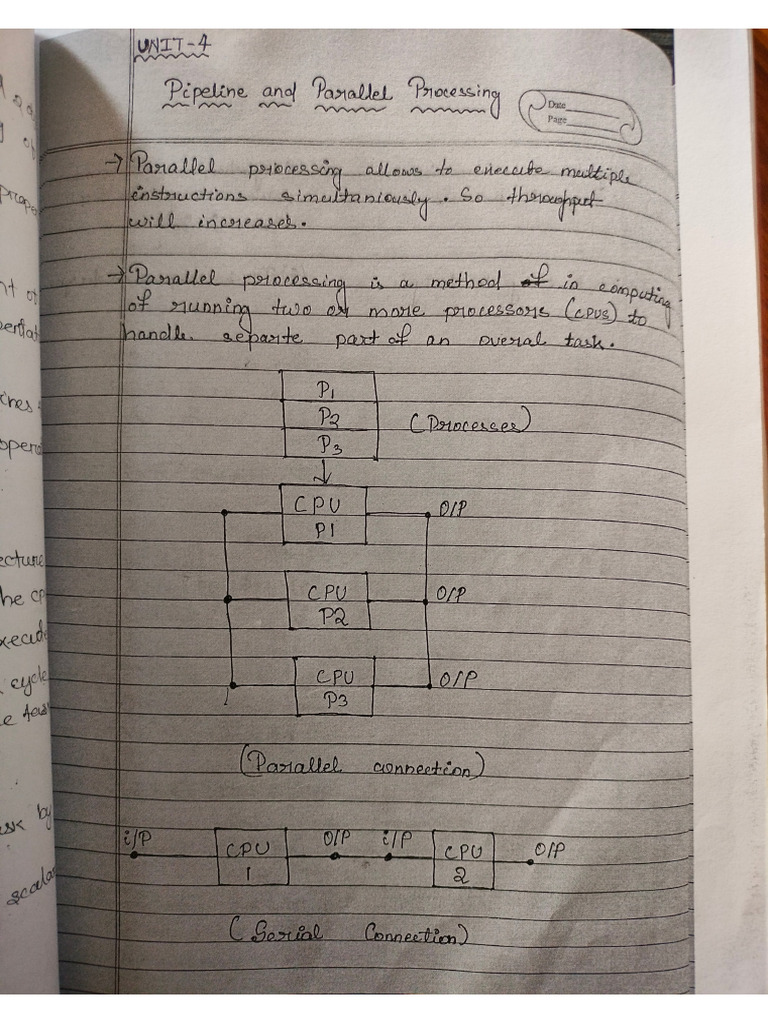 UNIT-4
Pipeline and Parallel Processing
Date
Page
→ Parallel processing allows to execute multiple
instructions simultaniously. So throughput
will increases.
→ Parallel processing is a method of in computing
of running two or more processors (CPUs) to
handle separte part of an overal task.
P1
P2
P3
(Processes)
CPU
P1
O/P
CPU
P2
O/P
CPU
P3
O/P
(Parallel connection)
i/P
CPU
1
O/P
i/P
CPU
2
O/P
(Serial Connection)